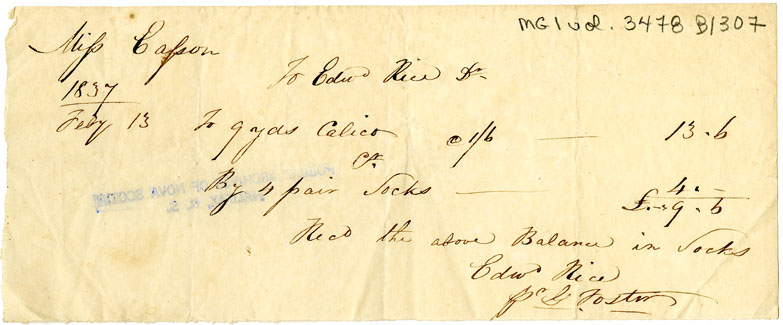 MG1 vol. 3478 B1307
Miss Easson
To Edwd Rice Dr
1837
Feby 13 To 9 yds Calico @ 1/6 — 13 " 6
Cr
By 4 pair Socks — 4 " –
£ " 9 " 6
Recd the above Balance in Socks
Edwd Rice
pr Foster
PUBLIC ARCHIVES OF NOVA SCOTIA
HALIFAX, N. S.